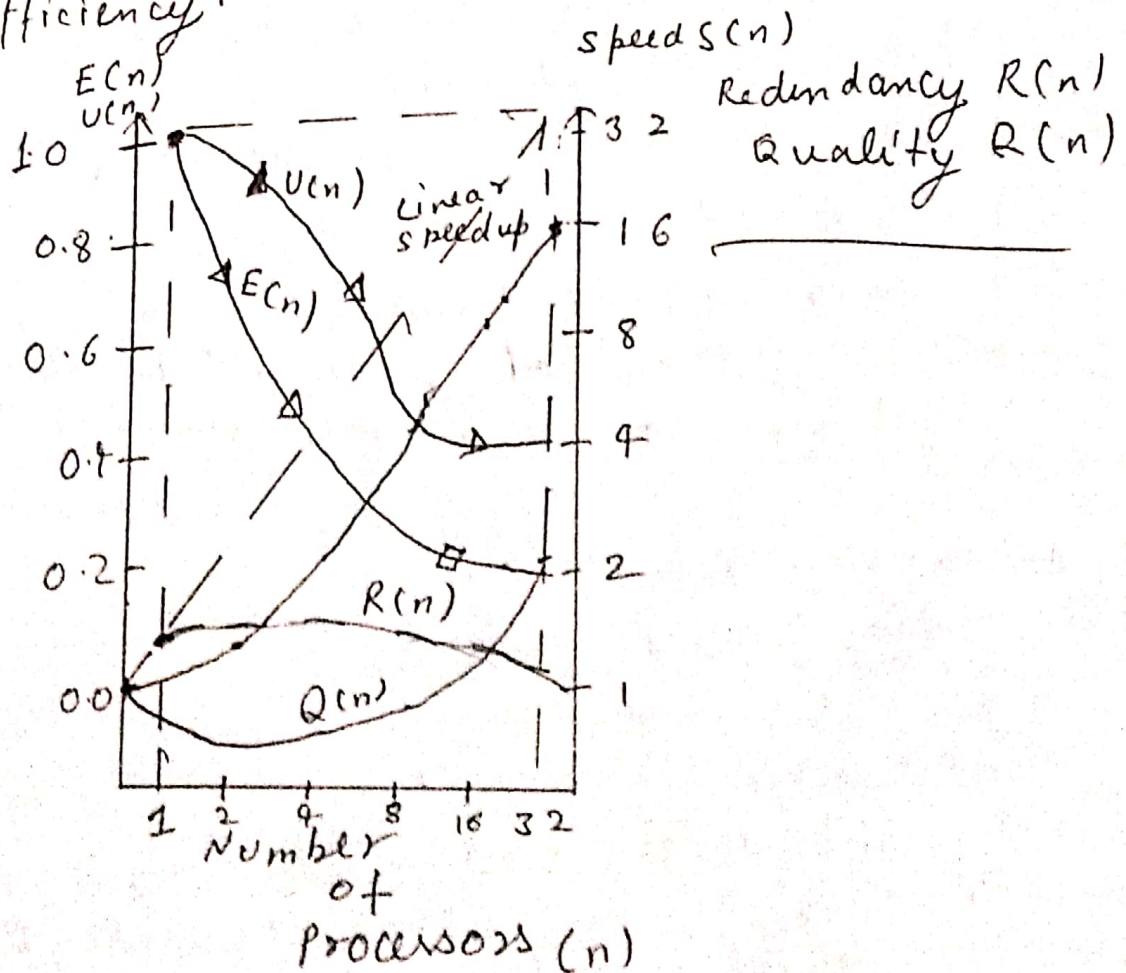 fficiency
E(n)
U(n)
speed S(n)
Redundancy R(n)
Quality Q(n)
1.0
0.8
0.6
0.4
0.2
0.0
32
16
8
4
2
1
U(n)
Linear
speedup
E(n)
R(n)
Q(n)
1 2 4 8 16 32
Number
of
Processors (n)